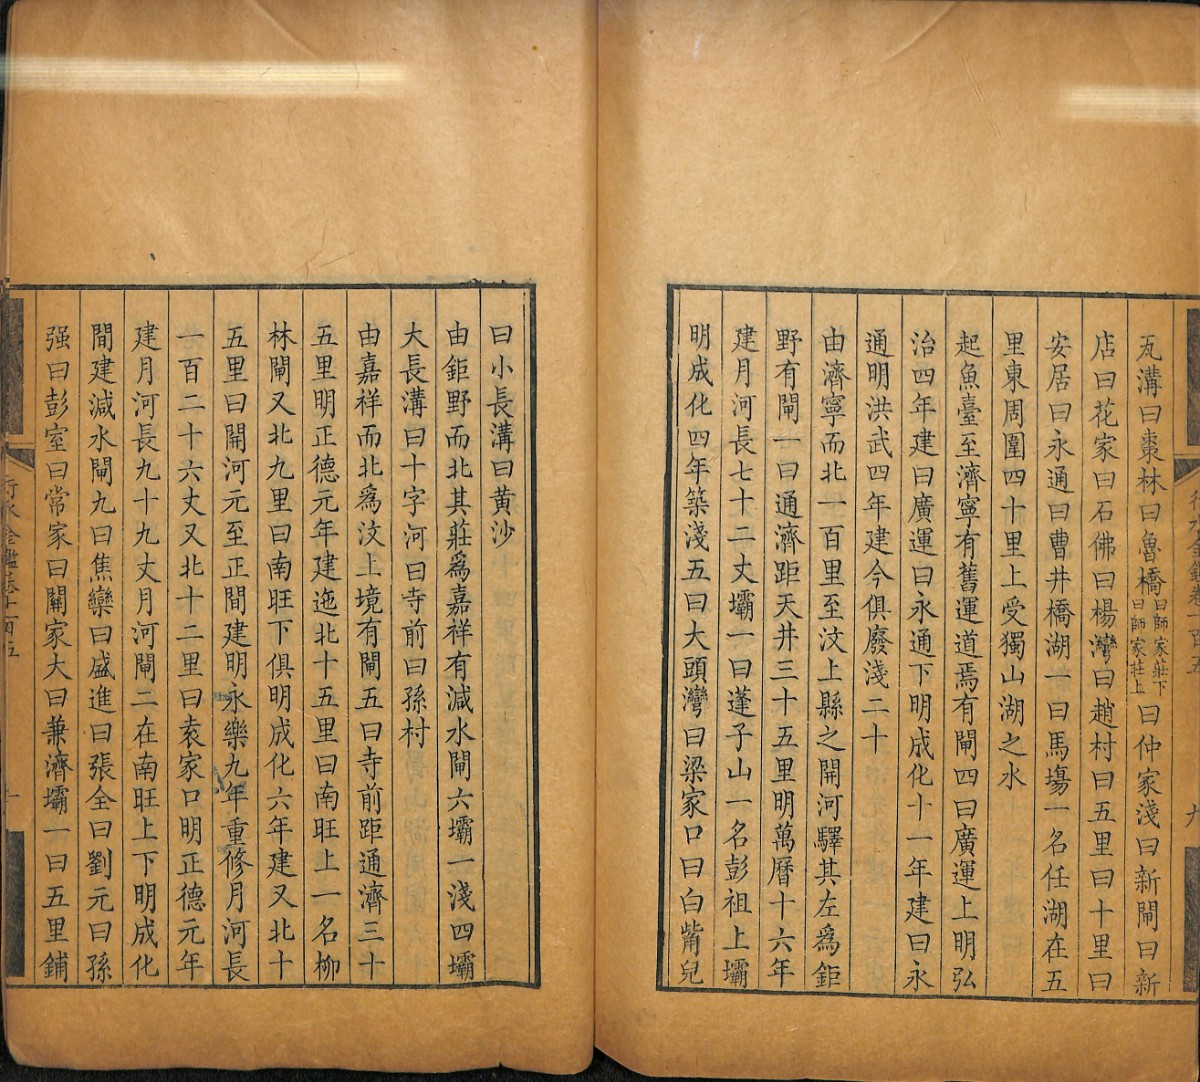 瓦溝曰棗林曰魯橋曰師家莊下曰師家莊上曰仲家淺曰新閘曰新
店曰花家曰石佛曰楊灣曰趙村曰五里曰十里曰
安居曰永通曰曹井橋湖一曰馬塲一名任湖在五
里東周圍四十里上受獨山湖之水
起魚臺至濟寧有舊運道焉有閘四曰廣運上明弘
治四年建曰廣運曰永通下明成化十一年建曰永
通明洪武四年建今俱廢淺二十
由濟寧而北一百里至汶上縣之開河驛其左爲鉅
野有閘一曰通濟距天井三十五里明萬曆十六年
建月河長七十二丈壩一曰蓬子山一名彭祖上壩
明成化四年築淺五曰大頭灣曰梁家口曰白觜兒
曰小長溝曰黄沙
由鉅野而北其莊爲嘉祥有減水閘六壩一淺四壩
大長溝曰十字河曰寺前曰孫村
由嘉祥而北爲汶上境有閘五曰寺前距通濟三十
五里明正德元年建迤北十五里曰南旺上一名柳
林閘又北九里曰南旺下俱明成化六年建又北十
五里曰開河元至正間建明永樂九年重修月河長
一百二十六丈又北十二里曰袁家口明正德元年
建月河長九十九丈月河閘二在南旺上下明成化
間建減水閘九曰焦欒曰盛進曰張全曰劉元曰孫
强曰彭室曰常家曰關家大曰兼濟壩一曰五里鋪